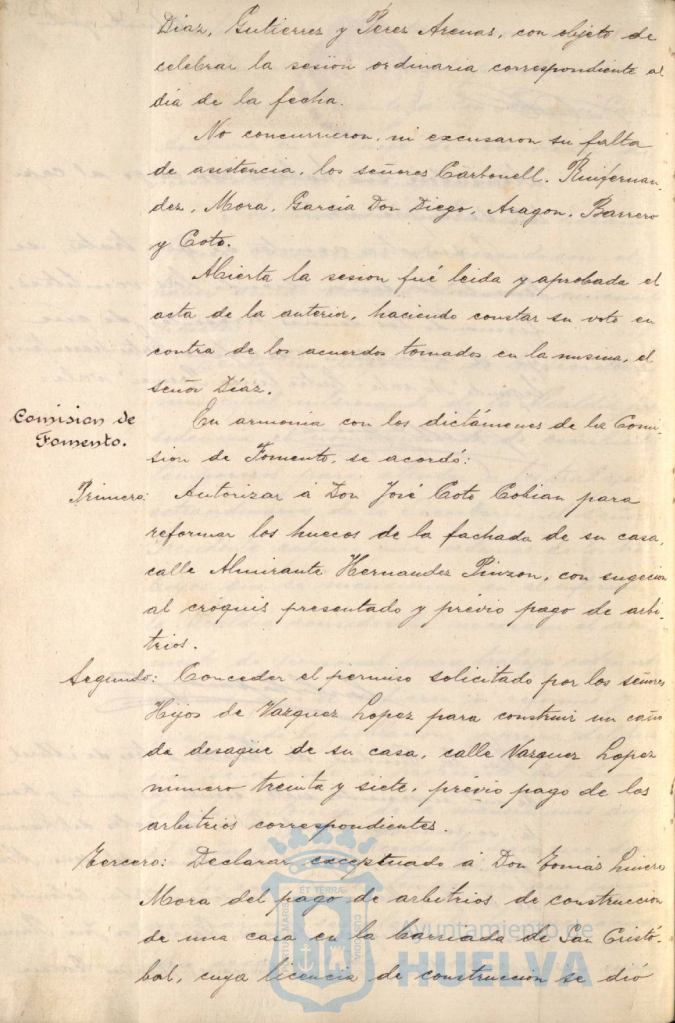 Díaz, Gutierrez y Perez Arenas, con objeto de
celebrar la sesión ordinaria correspondiente al
día de la fecha.
No concurrieron, ni excusaron su falta
de asistencia, los señores Carbonell, Ruifernan-
dez, Mora, García Don Diego, Aragon, Barrero
y Coto.
Abierta la sesion fué leida y aprobada el
acta de la anterior, haciendo constar su voto en
contra de los acuerdos tomados en la misma, el
señor Díaz.
Comision de
Fomento.
En armonia con los dictámenes de la Comi-
sion de Fomento, se acordó:
Primero: Autorizar á Don José Coto Cobian para
reformar los huecos de la fachada de su casa,
calle Almirante Hernandez Pinzon, con sugecion
al cróquis presentado y prévio pago de arbi-
trios.
Segundo: Conceder el permiso solicitado por los señores
Hijos de Vazquez Lopez para construir un caño
de desagüe de su casa, calle Vazquez Lopez
número treinta y siete, prévio pago de los
arbitrios correspondientes.
Tercero: Declarar exceptuado á Don Tomás
Mora del pago de arbitrios de construccion
de una casa en la barriada de San Cristó-
bal, cuya licencia de construccion se dió
Ayuntamiento de
HUELVA